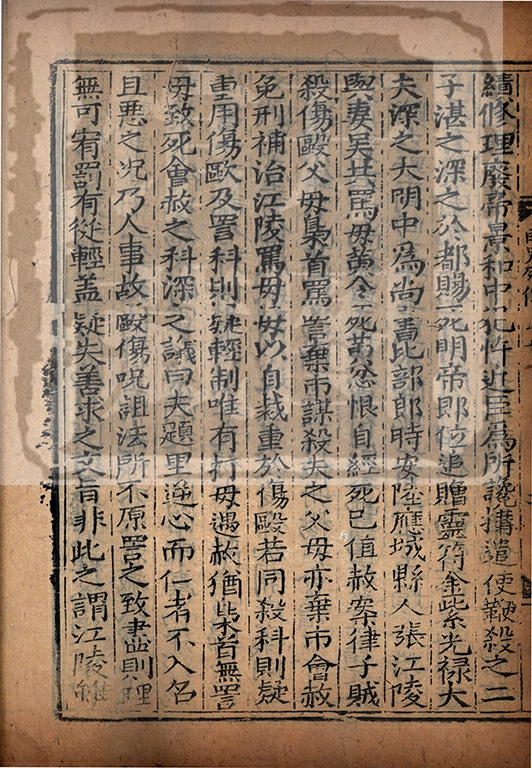 績修理廢帝景和中犯忤近臣為所讒搆遣使鞭殺之二
子湛之深之於都賜死明帝即位追贈靈符金紫光禄大
夫深之大明中為尚書比部郎時安陸應城縣人張江陵
與妻吳共罵母黄令死黄忿恨自經死巳值赦案律子賊
殺傷毆父母梟首罵詈棄市謀殺夫之父母亦棄市會赦
免刑補治江陵罵母母以自裁重於傷毆若同殺科則疑
重用傷毆及詈科則疑輕制唯有打母遇赦猶梟首無詈
母致死會赦之科深之議曰夫題里逆心而仁者不入名
且惡之况乃人事故毆傷呪詛法所不原詈之致盡則理
無可宥罰有從輕盖疑失善求之文旨非此之謂江陵雖